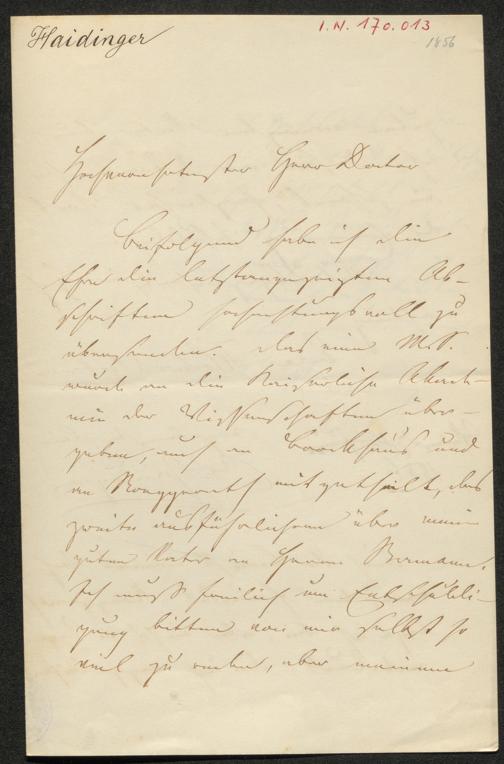 Haidinger
I.N. 170.013
1856
Hochverehrtester Herr Doctor
Beifolgend habe ich die
Ehre die letztangezeigten Ab-
schriften hochachtungsvoll zu
übersenden. Das eine M.S.
wurde an die Kaiserliche Akade-
mie der Wissenschaften über-
geben, auch an Brockhaus und
an mitgetheilt, das
zweite ausführlichere über meinen
guten Vater an Herrn Bermann.
Ich muss freilich um Entschuldi-
gung bitten von mir selbst so
viel zu reden, aber meinem